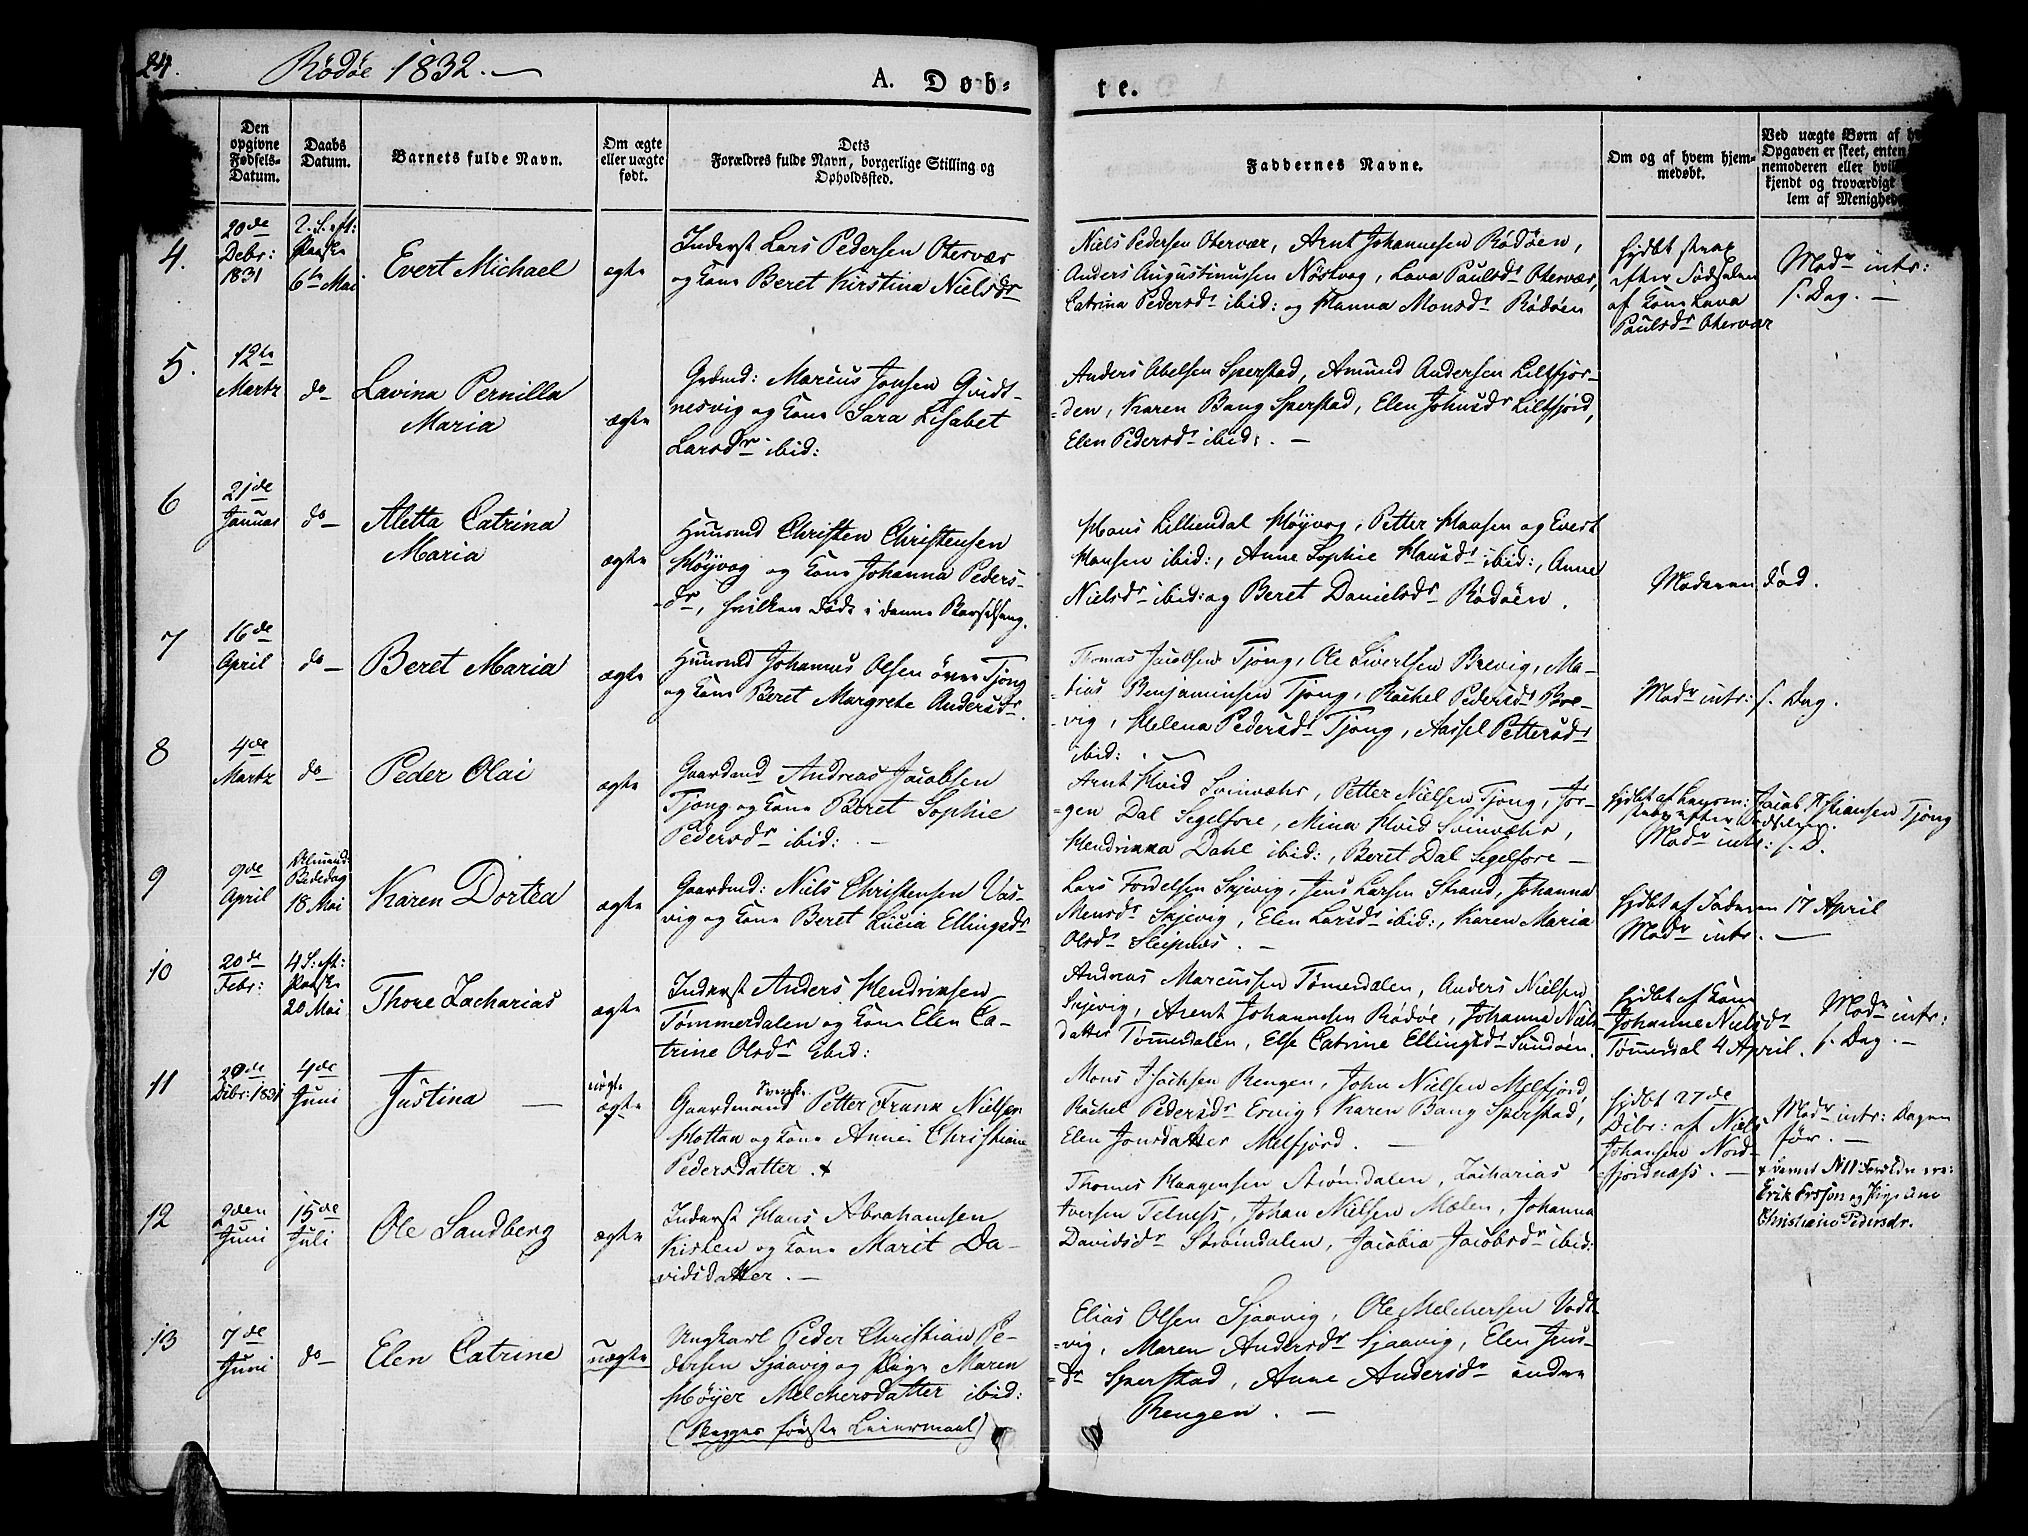 24.
Rödöe 1832.
A. Døb-
te.
Den opgivne Fødsels-Datum.
Daabs Datum.
Barnets fulde Navn.
Om ægte eller uægte født.
Dets Forældres fulde Navn, borgerlige Stilling og Opholdssted.
Faddernes Navne.
Om og af hvem hjemmedøbt.
Ved uægte Børn af
Opgaven er skeet, enten
nemoderen eller
kjendt og troværdigt
lem af
4.
20de
Debr:
1831
2. S. eft:
Paaske
6te Mai
Evert Michael
ægte
Inderst Lars Pedersen Otervær
og Kone Beret Kirstina Nielsdr
Niels Pedersen Otervær, Arnt Johannesen Rödöen,
Anders Augustinussen Nöstvog, Lava Paulsdr Otervær,
Catrina Pedersdr ibid: og Hanna Monsdr Rödöen
hjdbt strax
efter Födselen
af Kone Lava
Paulsdr Otervær
Modr intr:
s. Dag. —
5.
12te
Martz
do
Lavina Pernilla
Maria
ægte
Grdmd: Marcus Jonsen Gvidt-
nesvig og Kone Sara Lisabet
Larsdr ibid:
Anders Abelsen Sperstad, Amund Andersen Liltfjor-
den, Karen Bang Sperstad, Elen Johnsdr Liltfjord,
Elen Pedersdr ibid: . —
6
21de
Januar
do
Aletta Catrina
Maria
ægte
Huusmd Christen Christensen
Höyvog og Kone Johanna Peders-
dr, hvilken döde i denne Barselseng.
Hans Lilliendal Höyvog, Petter Hansen og Evert
Hansen ibid:, Anne Sophie Hansdr ibid:, Anne
Nielsdr ibid: og Beret Danielsdr Rödöen.
Moderen död.
7
16de
April
do
Beret Maria
ægte
Huusmd Johannes Olsen över Tjong
og Kone Beret Margrete Andersdr.
Thomas Jacobsen Tjong, Ole Sivertsen Brevig, Ma-
tius Benjaminsen Tjong, Rachel Pedersdr Bre-
vig, Helena Pedersdr Tjong, Aassel Pettersdr
ibid:
Modr intr: s. Dag.
8
4de
Martz
do
Peder Olai
ægte
Gaardmd Andreas Jacobsen
Tjong og Kone Beret Sophie
Pedersdr ibid: . —
Arnt Hvid Svinvær, Petter Nielsen Tjong, Jör-
gen Dal Segelfore, Mina Hvid Svinvær,
Hendrikka Dahl ibid:, Beret Dal Segelfore —
Modr intr: s. D.
9
9de
April
Almind:
Bededag
18 Mai
Karen Dortea
ægte
Gaardmd: Niels Christensen Vas-
vig og Kone Beret Lucia Ellingsdr
Lars Tordelsen Skjevig, Jens Larsen Strand, Johanna
Monsdr Skjevig, Elen Larsdr ibid:, Karen Maria
Olsdr Sleipnes . —
hjdbt af Faderen 17 April
Modr intr. —
10
20de
Febr:
4 S: eft:
Paaske
20 Mai
Thore Zacharias
ægte
Inderst Anders Hendriksen
Tömmerdalen og Kone Elen Ca-
trine Olsdr ibid:
Andreas Marcussen Tömerdalen, Anders Nielsen
Skjevig, Arent Johannesen Rödöe, Johanna Niels-
datter Tömerdalen, Else Catrine Ellingsdr Sundöen.
hjdbt af Kone
Johanne Nielsdr
Tömerdal 4 April.
Modr intr:
s. Dag. —
11
20de
Debr: 1831
4de
Juni
Justina —
uægte
ægte
Gaardmand Svensk Petter Frank Nielsen
Hottan og Kone Anne Christiane
Pedersdatter. +
Mons Isachsen Rengen, John Nielsen Melfjord,
Rachel Pedersdr Esvig, Karen Bang Sperstad,
Elen Jonsdatter Melfjord. —
hjdbt 27de
Debr: af Niels
Johansen Nord-
fjordnæss. —
Modr intr: Dagen
för. —
+ Barnet N 11: Forældre ere:
Erik Ersson og Pige Ane
Christiane Pedersdr.
12
2den
Juni
15de
Juli
Ole Sandberg
ægte
Inderst Hans Abrahamsen
Kisten og Kone Marit Da-
vidsdatter. —
Thomes Haagensen Strömdalen, Zacharias
Iversen Telness, Johan Nielsen Mælen, Johanna
Davidsdr Strömdalen, Jacobia Jacobsdr ibid:
13
7de
Juni
do
Elen Catrine
uægte
Ungkarl Peder Christian Pe-
dersen Sjaavig og Pige Maren
Höyer Melchersdatter ibid:
(Begges förste Leiermaal)
Elias Olsen Sjaavig, Ole Melchersen Vadt-
vig, Maren Andersdr Sjaavig, Elen Jens-
dr Sperstad, Anne Andersdr indre
Rengen. —